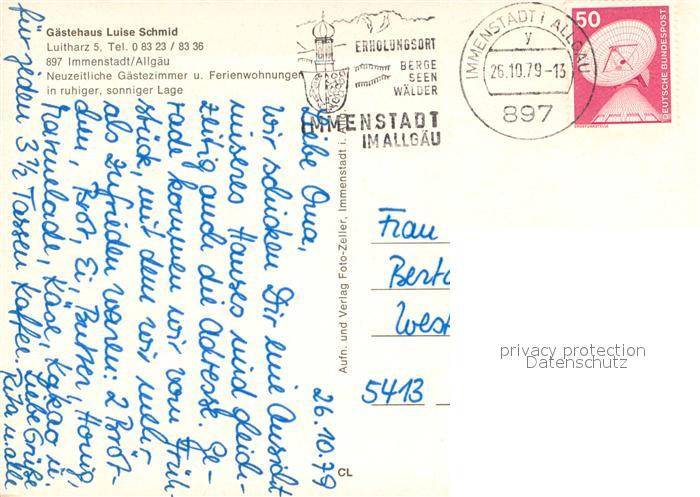 Gästehaus Luise Schmid
Luitharz 5, Tel. 0 83 23 / 83 36
897 Immenstadt/Allgäu
Neuzeitliche Gästezimmer u. Ferienwohnungen
in ruhiger, sonniger Lage
ERHOLUNGSORT
BERGE
SEEN
WÄLDER
IMMENSTADT
IM ALLGÄU
IMMENSTADT I ALLGÄU
y
26.10.79-13
897
50
DEUTSCHE BUNDESPOST
ERDEFUNKSTELLE
26.10.79
Liebe Oma,
wir schicken Dir eine Ansicht
unseres Hauses und gleich-
zeitig auch die Adresse. Ge-
rade kommen wir vom Früh-
stück, mit dem wir mehr
als zufrieden waren: 2 Bröt-
chen, Brot, Ei, Butter, Honig,
Marmelade, Käse, Kakao u.
für jeden 3½ Tassen Kaffee.
Liebe Grüße
Rita u. alle
Aufn. und Verlag Foto-Zeller, Immenstadt i.
CL
Frau
Berta
West
5413
privacy protection
Datenschutz